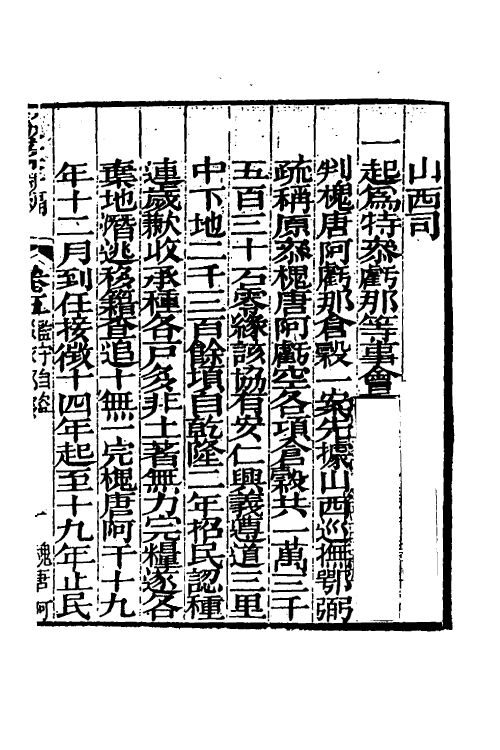 山西司
一起爲特叅虧那等事會
判槐唐阿虧那倉榖一案先據山西巡撫鄂弼
疏稱原叅槐唐阿虧空各項倉榖共一萬三千
五百三十石零緣該協有安仁興義遵道三里
中下地二千三百餘頃自乾隆二年招民認種
連歲歉收承種各戸多非土著無力完糧遂各
棄地潛逃移籍查追十無一完槐唐阿于十九
年十二月到任接徵十四年起至十九年止民
卷五 監守自盜 一 槐唐阿